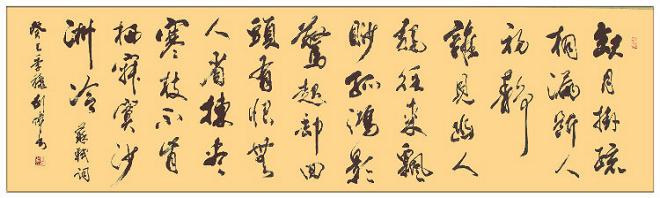 缺月掛疏
桐漏斷人
初靜
誰見幽人
獨往來飄
眇孤鴻影
驚起却回
頭有恨無
人省揀盡
寒枝不肯
栖寂寞沙
洲冷
蘇軾詞
癸巳季穐